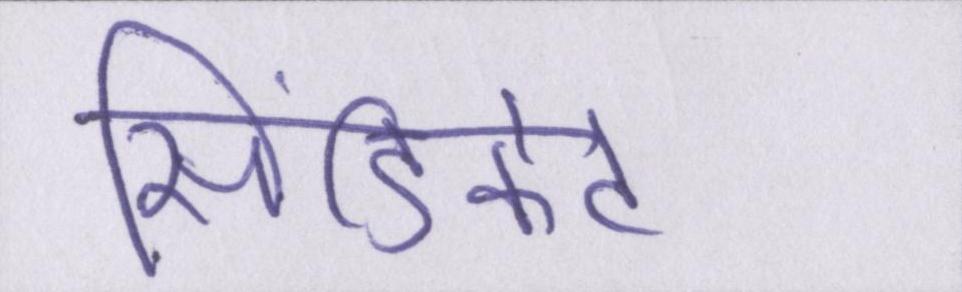 सिंडिकेट